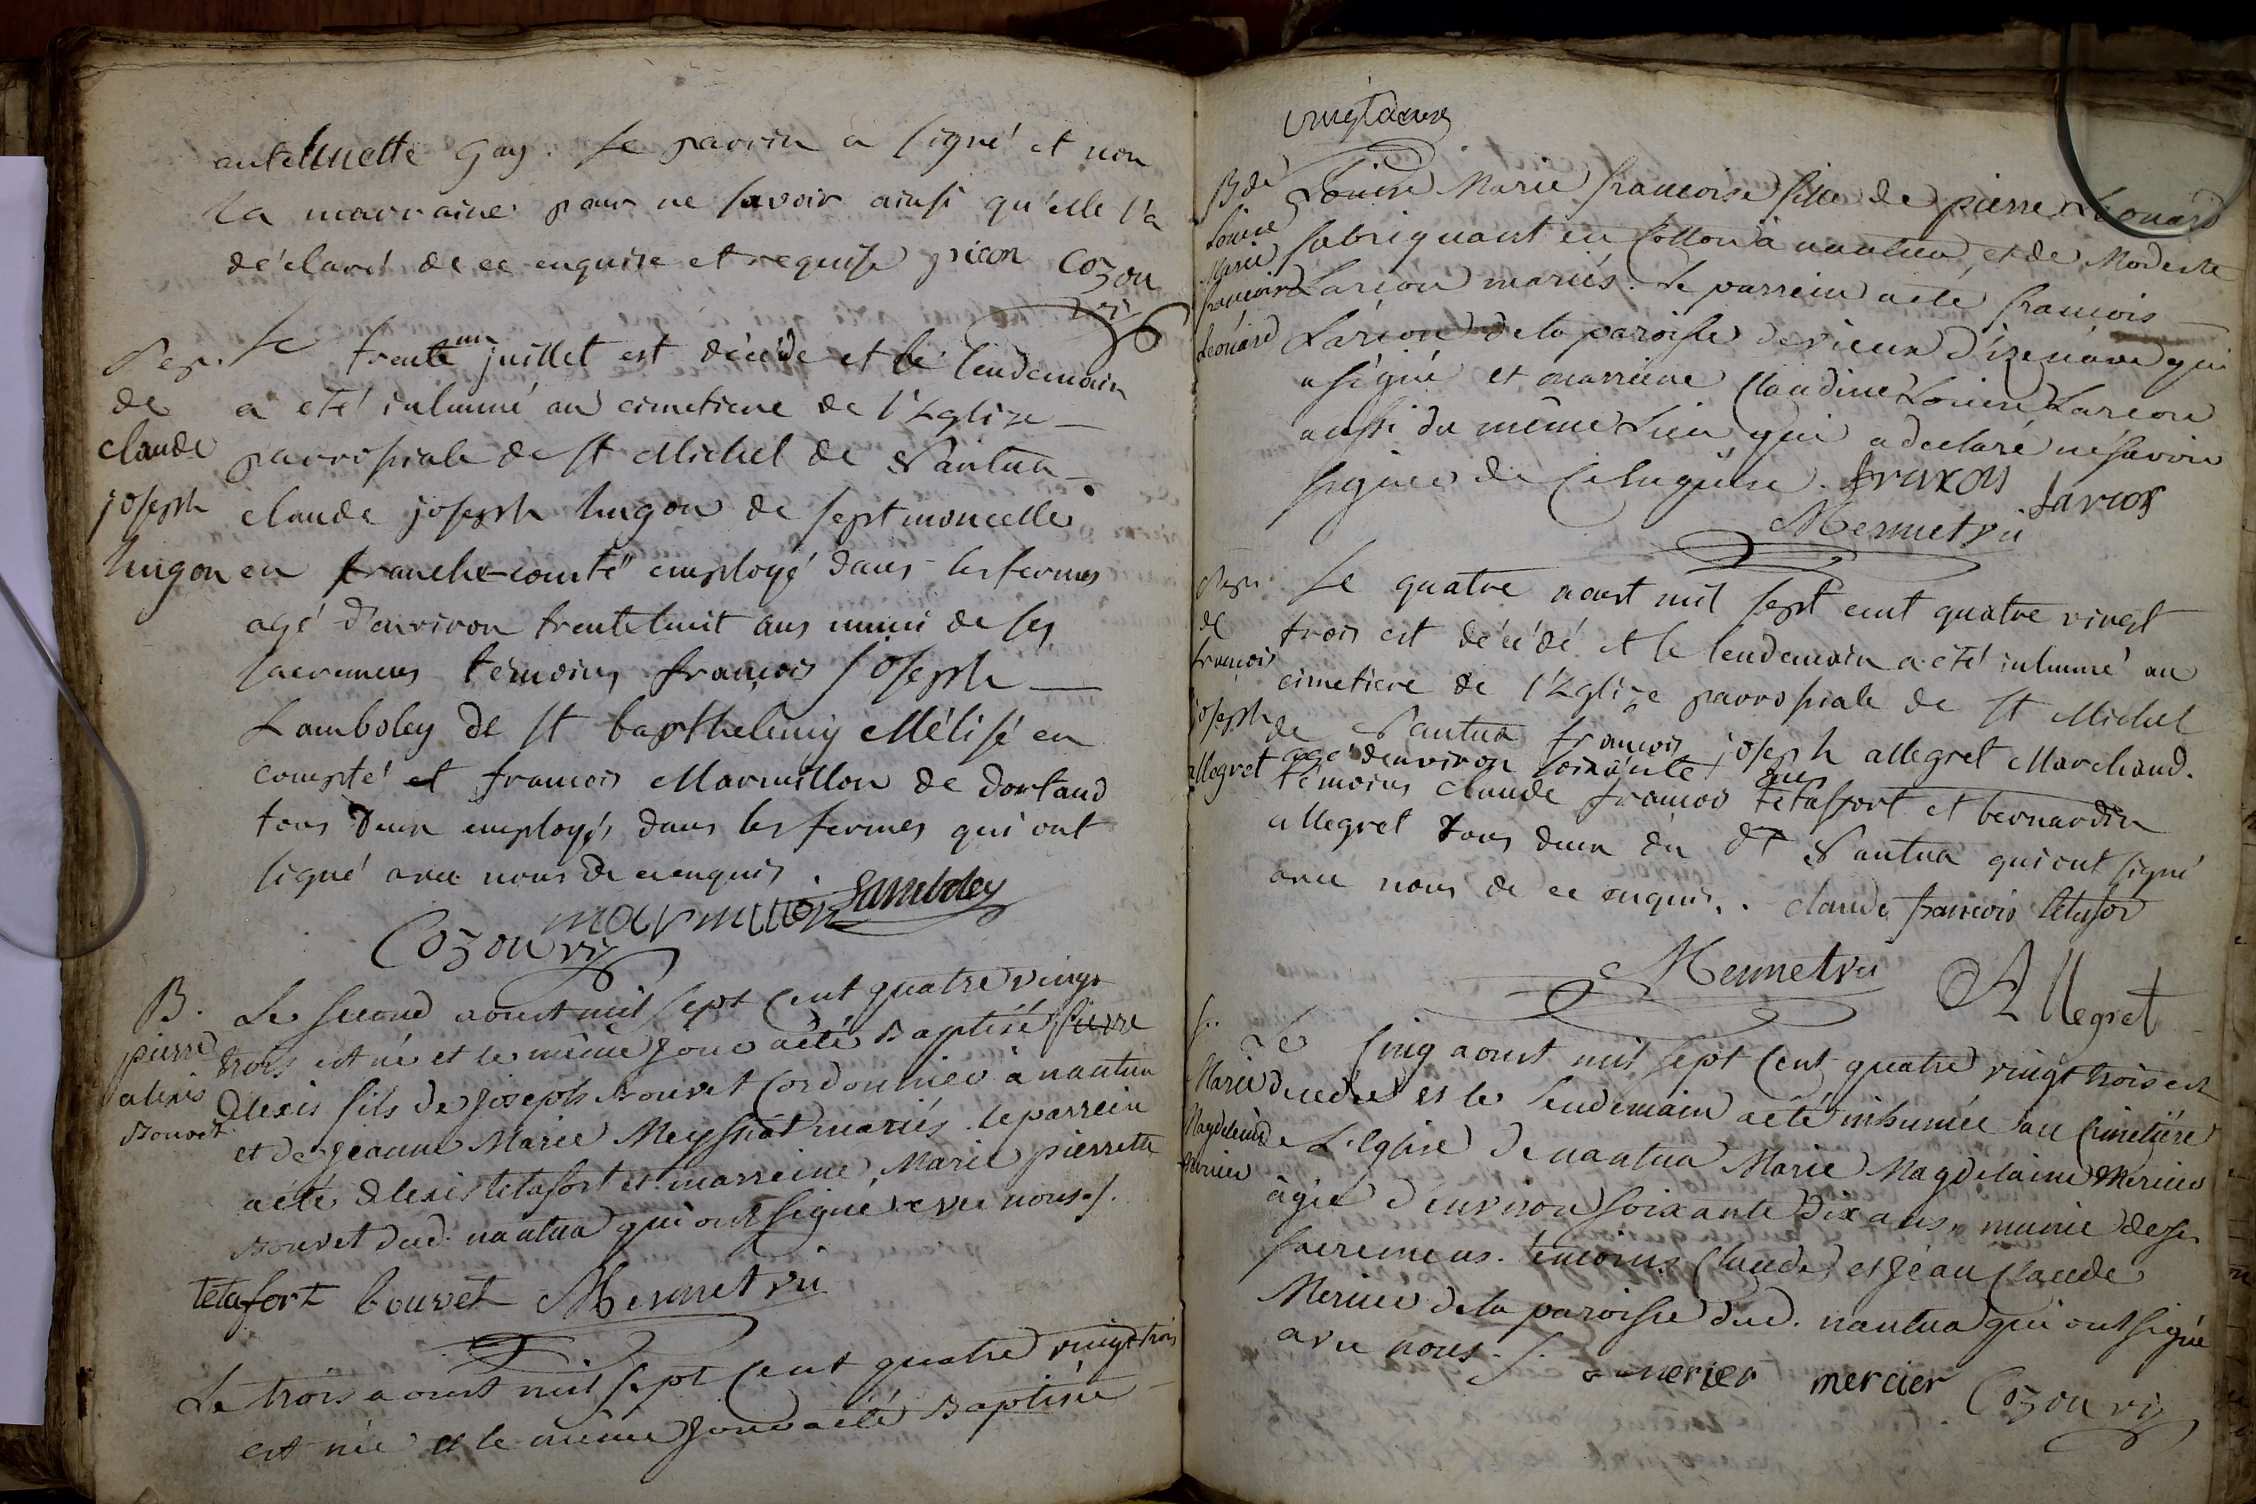 antelmette Gay. Le parrin a signé et non
la marraine pour ne savoir ainsi qu'elle l'a
déclaré de ce enquise et requise picon Cozon
vi
Sep. de claude joseph hugon
Le trente un juillet est décédé et le lendemain
a été inhumé au cimetiere de l'Eglize
parrossiale de st Michel de Nantua
claude joseph hugon de septmoncelle
en franche-comté employé dans les fermes
agé d'environ trentehuit ans muni de ses
sacremens témoins françois joseph
Lamboley de st barthelemy Mélisé en
compté et francois Marmillon de dortand
tous deux employés dans les fermes qui ont
signé avec nous de ce enquis
marmillon Lamboley
Cozon vi
B. pierre alexis Bouvet
Le second aoust mil sept cent quatre vingt
trois est né et le même jour a été Baptisé pierre
Alexis fils de joseph Bouvet Cordonnier à nantua
et de jeanne Marie Meyssiat mariés. le parrein
a été Alexis tétafort et marreine Marie pierrette
Bouvet dud. nantua qui ont signé avec nous./.
tétafort bouvet Mermet vi
Le trois aoust mil sept cent quatre vingt trois
est née et le même jour a été Baptisée
vingt deux
B de Louise Marie francoise Léonard
Louise Marie francoise fille de pierre Léonard
fabriquant en Cotton à nantua, et de Modeste
Larçon mariés. Le parrein a été françois
Larçon de la paroisse de vieux d'izenave qui
a signé et marreine Claudine Louise Larcon
aussi du même Lieu qui a declaré ne savoir
signer de ce enquise. francois Larcon
Mermet vi
Sep. de françois joseph allegret
Le quatre aoust mil sept cent quatre vingt
trois est décédé et le lendemain a été inhumé au
cimetiere de l'Eglize parrossiale de st Michel
de Nantua françois joseph allegret Marchand.
agé d'environ soixante ans
témoins claude françois tétafort et bernardin
allegret tous deux du dt Nantua qui ont signé
avec nous de ce enquis. claude francois tétafor
Mermet vi Allegret
S. Marie Magdelaine Mercier
Le cinq aoust mil sept cent quatre vingt trois est
decedée et le lendemain a été inhumée au Cimetière
de L'Eglise de nantua Marie Magdelaine Mercier
agée d'environ soixante dix ans, munie de ses
sacremens. témoins Claude et jean Claude
Mercier de la paroisse dud. nantua qui ont signé
avec nous./.
mercier mercier Cozon vi